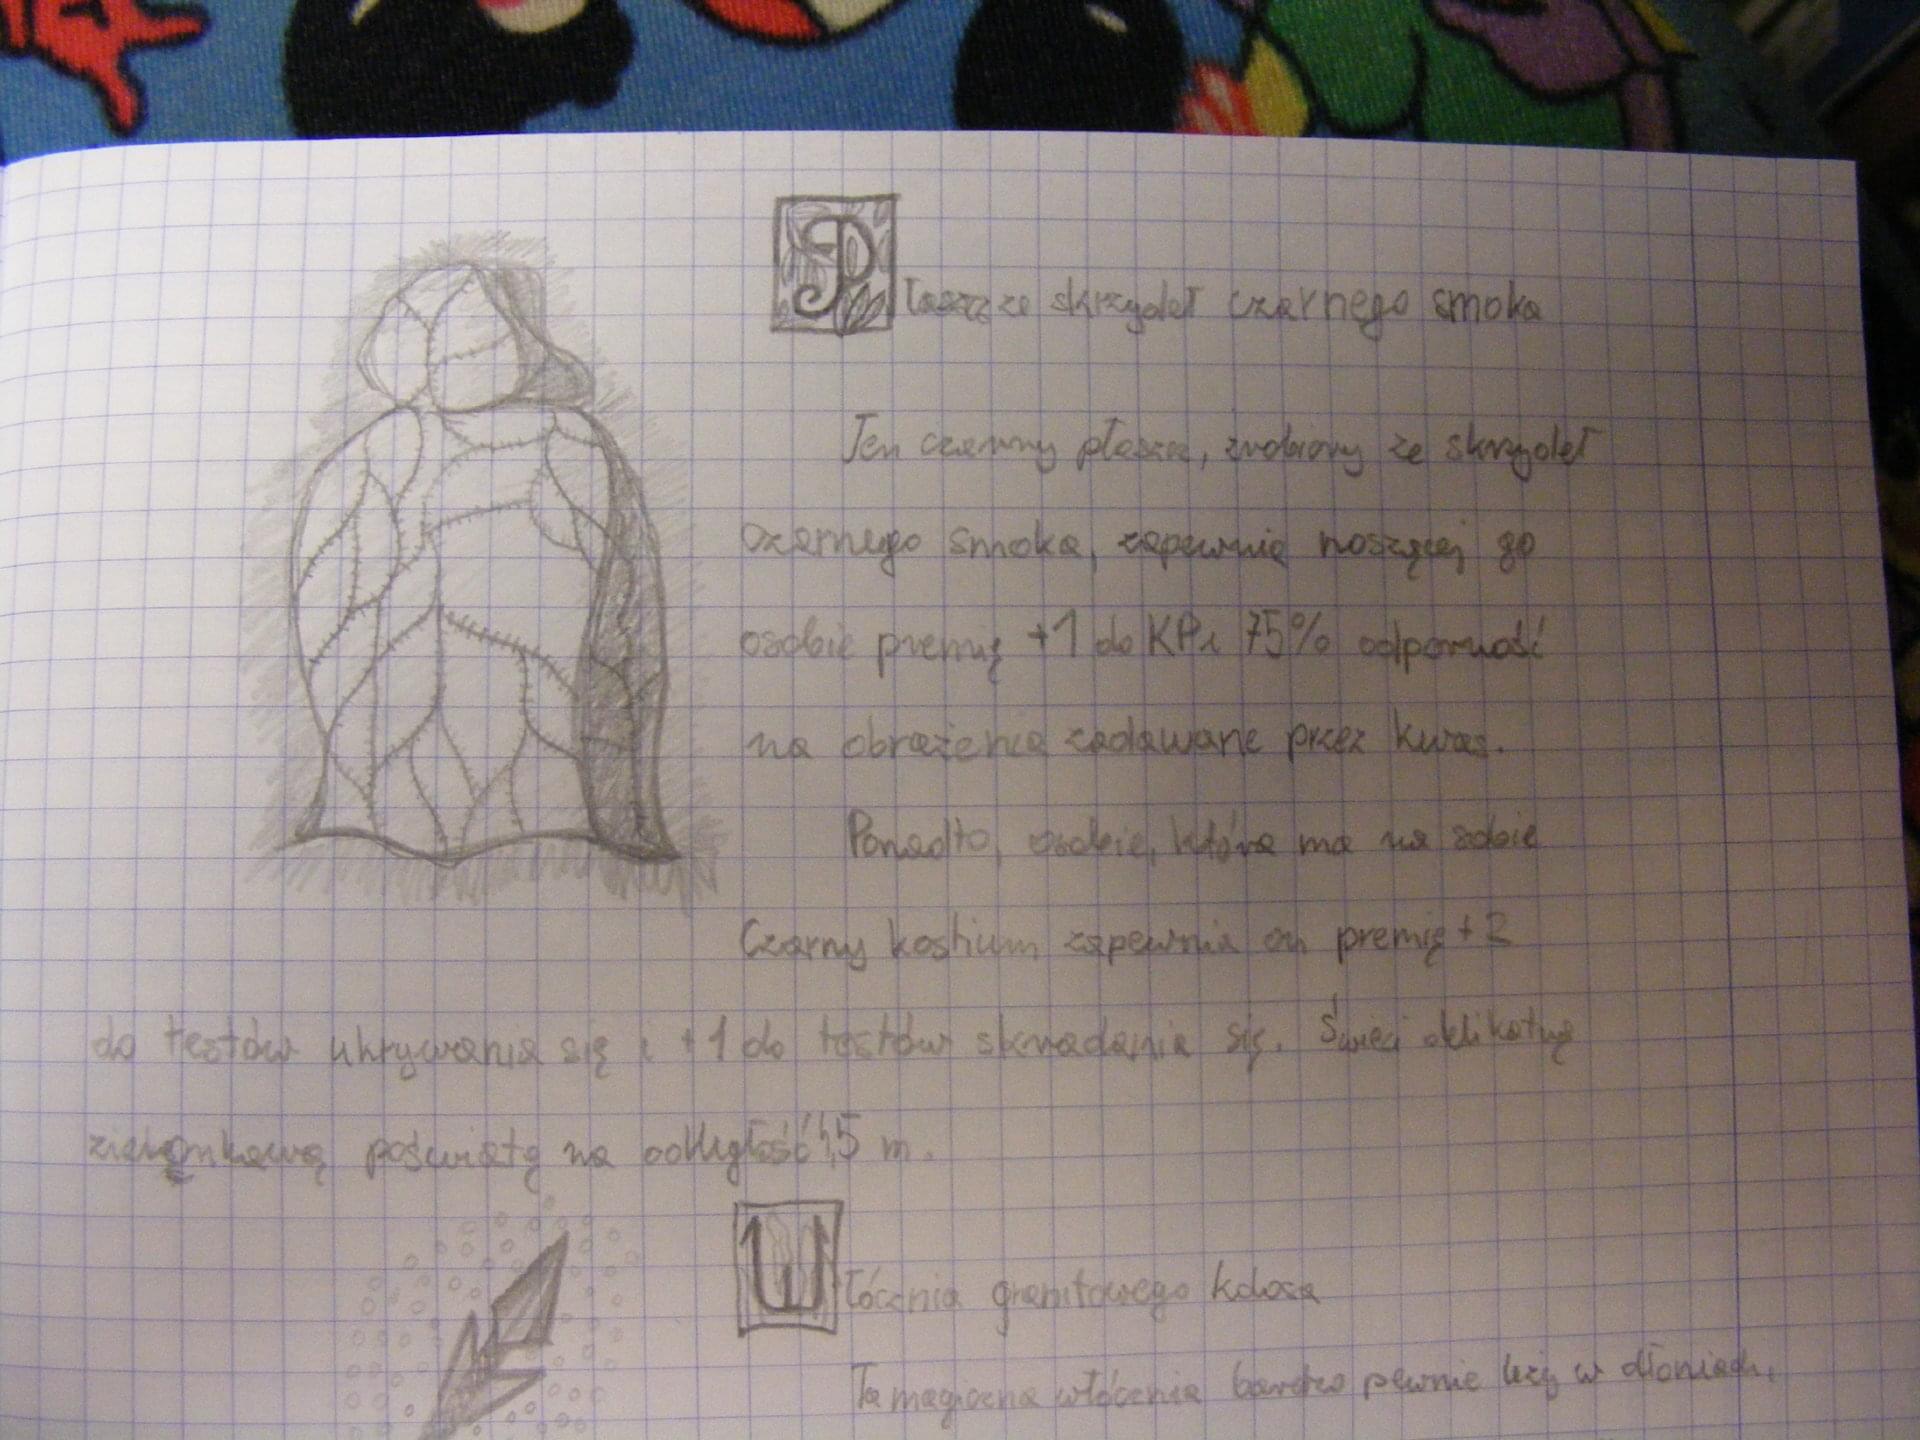 Płaszcz ze skrzydeł czarnego smoka
Ten czarny płaszcz, zrobiony ze skrzydeł
czarnego smoka, zapewnia noszącej go
osobie premię +1 do KP i 75% odporność
na obrażenia zadawane przez kwas.
Ponadto, osobie, która ma na sobie
Czarny kostium zapewnia on premię +2
do testów ukrywania się i +1 do testów skradania się. Świeci delikatną
zielonkawą poświatą na odległość 1,5 m.
Włócznia granitowego kolosa
Ta magiczna włócznia bardzo pewnie leży w dłoniach,